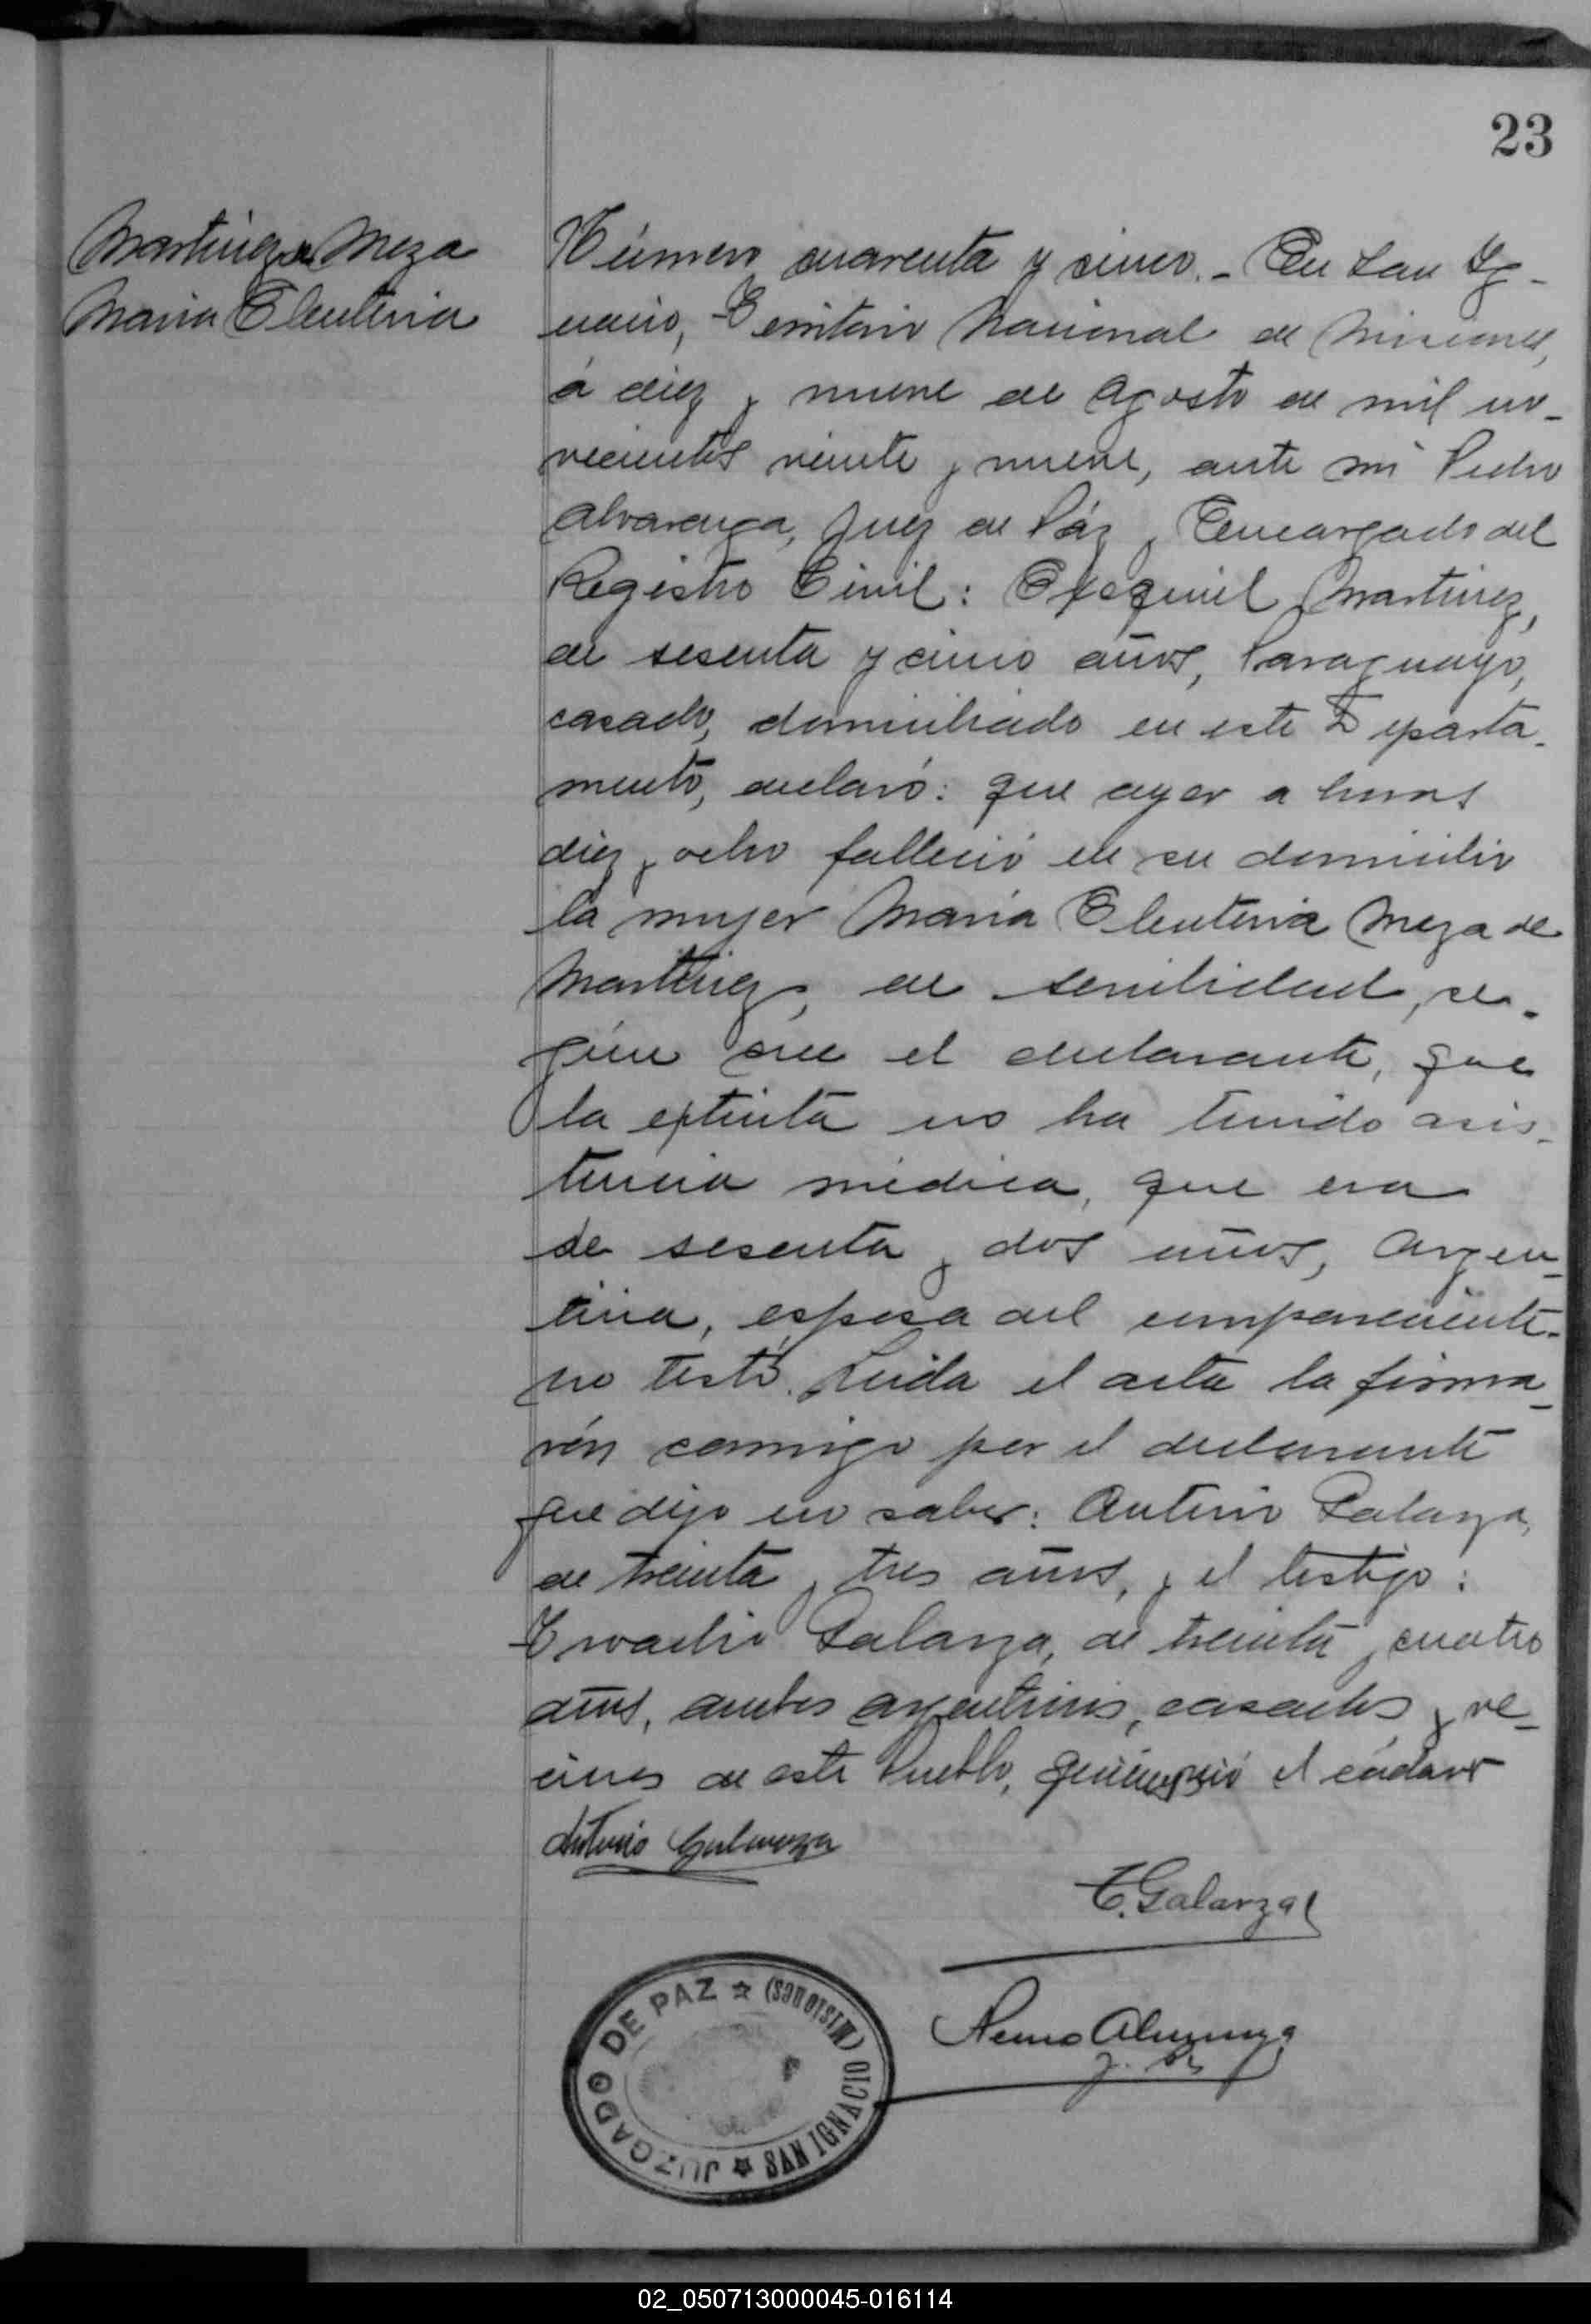 23
Martinez de Meza
Maria Eleuteria
Número cuarenta y cinco. - En San Ig-
nacio, Territorio Nacional de Misiones,
á diez y nueve de Agosto de mil no-
vecientos veinte y nueve, ante mi Pedro
Alvarenga, Juez de Páz y Encargado del
Registro Civil: Exequiel Martinez,
de sesenta y cinco años, Paraguayo,
casado, domiciliado en este Departa-
mento, declaró: que ayer a horas
diez y ocho falleció en su domicilio
la mujer Maria Eleuteria Meza de
Martinez, de senilidad, se-
gún cree el declarante, que
la extinta no ha tenido asis-
tencia médica, que era
de sesenta y dos años, Argen-
tina, esposa del compareciente-
no testó. Leida el acta la firma-
rón conmigo por el declarante
que dijo no saber: Antonio Galarza,
de treinta y tres años, y el testigo:
Eroadio Galarza, de treinta y cuatro
años, ambos argentinos, casados y ve-
cinos de este Pueblo, quienes vió el cádaver
Antonio Galarza
E. Galarza
Pedro Alvarenga
J. Pz
JUZGADO DE PAZ ☆ SAN IGNACIO (Misiones) ☆
02_050713000045-016114